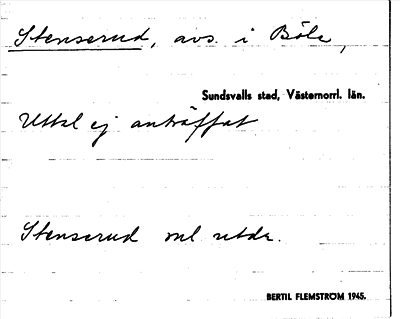 Stenserud, avs. i Böle,
Sundsvalls stad, Västernorrl. län.
Uttal ej anträffat
Stenserud
BERTIL FLEMSTRÖM 1945.